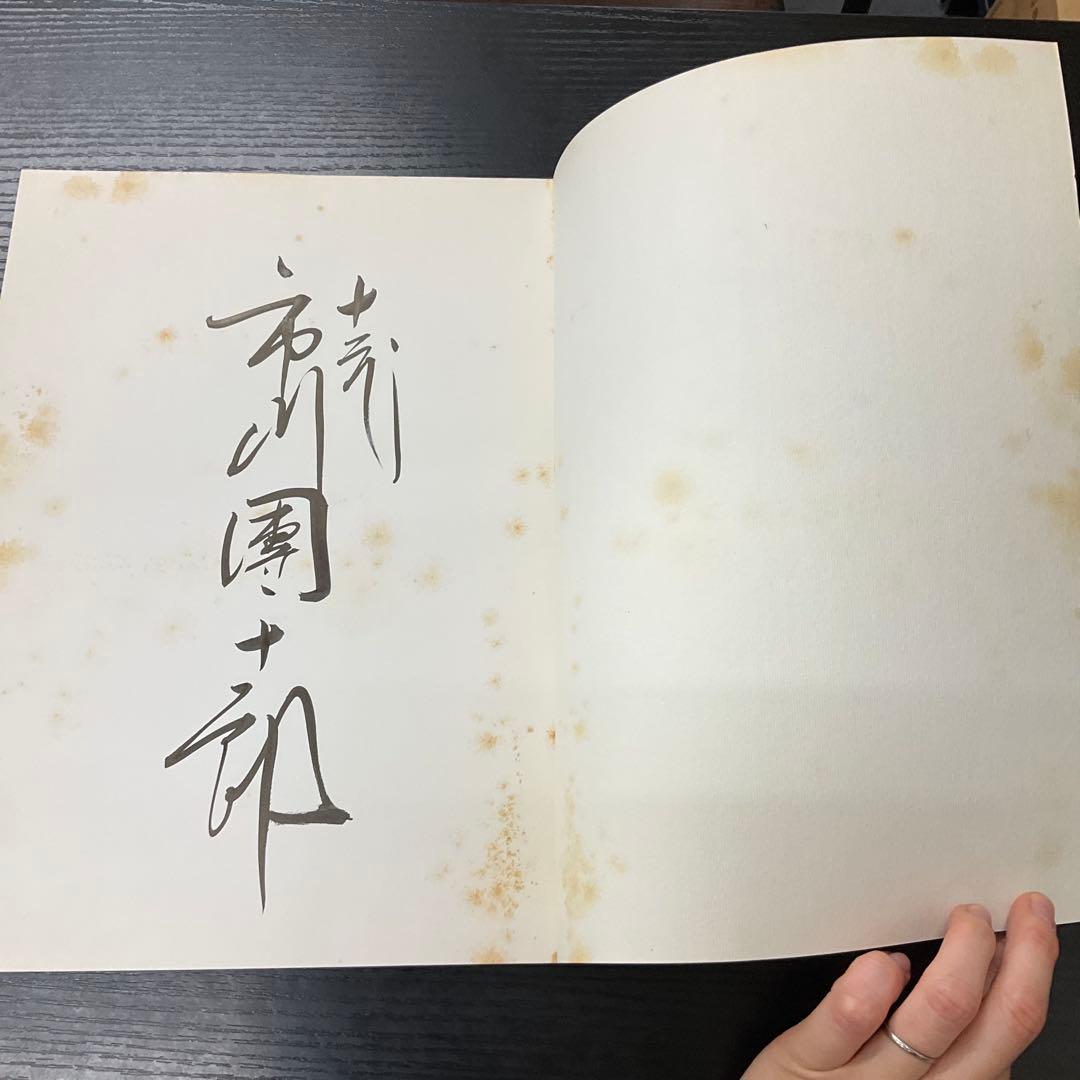 十二代
市川團十郎